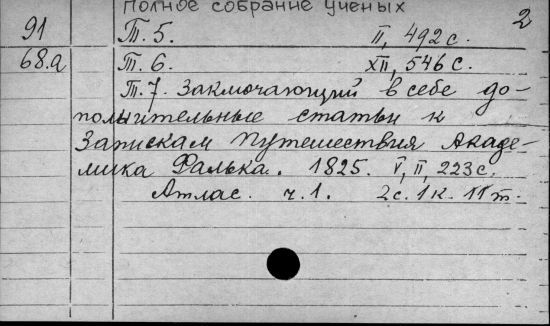 Полное собрание ученых
2
91 Т. 5. II, 492 с.
68.а Т. 6. XII, 546 с.
Т. 7. Заключающий в себе до-
полнительные статьи к
Запискам Путешествия Акаде-
мика Фалька. 1825. V, II, 223 с.
Атлас. ч. 1. 2 с. 1 к. 11 т.